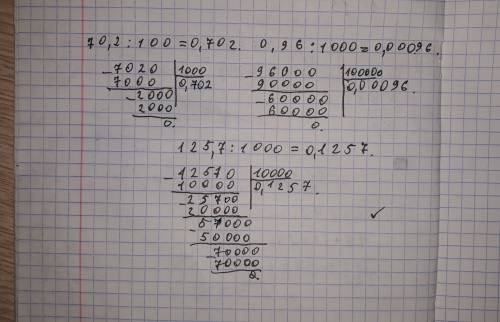 70,2 : 100 = 0,702. 0,96 : 1000 = 0,00096.
7020 | 1000
7000 | 0,702
2000
2000
0.
96000 | 100000
90000 | 0,00096.
60000
60000
0.
125,7 : 1000 = 0,1257.
12570 | 10000
10000 | 0,1257.
25700
20000
57000
50000
70000
70000
0.